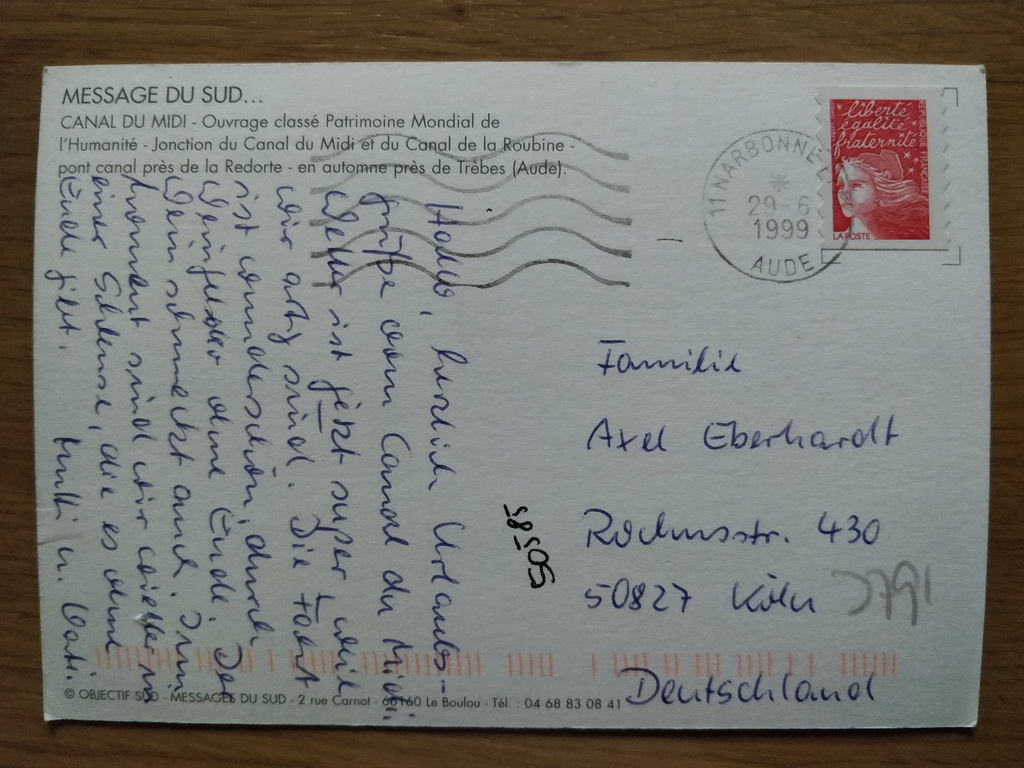 MESSAGE DU SUD...
CANAL DU MIDI - Ouvrage classé Patrimoine Mondial de
l'Humanité - Jonction du Canal du Midi et du Canal de la Roubine -
pont canal près de la Redorte - en automne près de Trèbes (Aude).
liberté
égalité
fraternité
REPUBLIQUE FRANÇAISE
LA POSTE
11 NARBONNE
29-6
1999
AUDE
Hallo, herzlich Urlaubs-
grüße vom Canal du Midi.
Wetter ist jetzt super weil
wir artig sind. Die Fahrt
ist wunderschön, durch
Weinfelder ohne Ende. Der
Wein schmeckt auch. Im
Moment sind wir wieder in
einer Schleuse, die es ohne
Ende gibt. Mutti u. Vati.
Familie
Axel Eberhardt
Rochusstr. 430
50827 Köln
Deutschland
© OBJECTIF SUD - MESSAGES DU SUD - 2 rue Carnot - 66160 Le Boulou - Tél. : 04 68 83 08 41